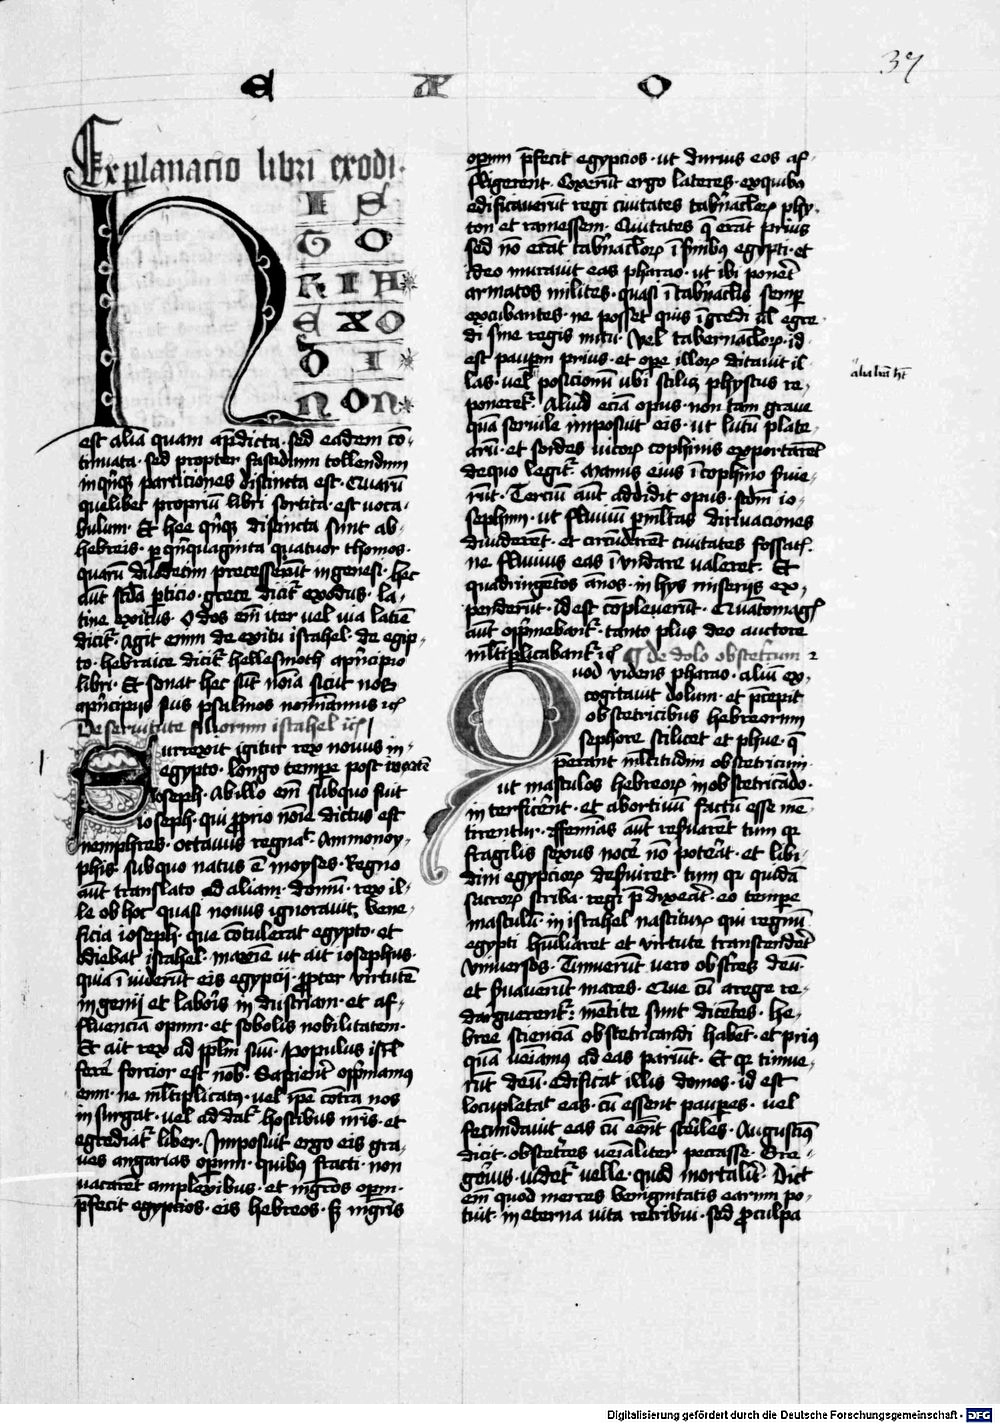 E X O
37
Explanacio libri exodi.
H I S
T O
R I A
E X O
D I
N O N
est alia quam ap̄dicta. sed eadem cō-
tinuata. sed propter fastidium tollendum
in qn̄qꝫ particiones distincta est. Quarū
quelibet propriū libri sortita. est voca-
bulum. Et hee qn̄qꝫ distincta sunt ab
hebreis. ꝑ qn̄quaginta quatuor thomos.
quarū duodecim precesserūt in genesi. hec
aūt scd̄a ꝑticio. grece dicit̄ exodus. la-
tine exitus. Odos em̄ iter vel via latīe
dicit̄. Agit enim de exitu israhel. de egip-
to. hebraice dicit̄ hellesmoth ap̄ncipio
libri. Et sonat hec sūt noīa sicut nos
ap̄ncipijs suis psalmos nominamus
De seruitute filiorum israhel
Surrexit igitur rex nouus in-
egypto. longo tempe post
ioseph. Ab illo em̄ sub quo fuit
ioseph. qui ꝓprio noīe dictus est
nemphres. octauus regnat̄. Ammonoy-
phis. sub quo natus ē moyses. Regno
aūt translato ad aliam. domū. rex il-
le ob hoc quasi nouus ignorauit. bene-
ficia ioseph. que cōtulerat egypto. et
odiebat israhel. maxīe ut ait iosephus.
quia īuiderūt eis egypcij. ꝓpter virtutē
ingenij et laboris industriam. et af-
fluenciā opum. et sobolis nobilitatem.
Et ait rex ad ppl̄m suū. Populus isrl̄
fortior est nob̄. Sapient̄ opp̄mamus
eum. ne ml̄tiplicatꝫ. vel ip̄e cōtra nos
insurgat. vel addat̄ hostibus nr̄is. et
egrediat̄ liber. Imposuit ergo eis gra-
ues angarias opum. quibꝫ fracti. non
vacarēt amplexibus. et
p̄fecit egypcios. eis hebreos.
opum p̄fecit egypcios. ut durius eos af-
fligerent. Coxerūt ergo lateres. ex quibꝫ
edificauerūt regi ciuitates tab̄naclorꝫ phy-
ton et ramessem. Ciuitates q̄ erāt prius
sed nō erāt tab̄naclorꝫ ī finibꝫ egypti. et
ideo murauit eas pharao. ut ibi ponēt
armatos milites. quasi ī tab̄naclis semp
excubantes. ne posset quis īgredi ul̄ egre-
di sine regis nutu. Vel tabernaclorꝫ. id-
est paupum prius. et ope illorꝫ ditauit il-
las. vel posicionū ubi scilicꝫ physcus re-
poneret̄. Aliud eciā opus. non tam graue
quā seruile imposuit eis. ut lutū plate-
arū. et sordes vicorꝫ cophinis exportarēt
de quo legit̄. Manus eius ī cophino s̄uie-
rūt. Tercium aūt addidit opus. scdm̄ io-
sephum. ut fluuiū ꝑ ml̄tas diriuaciones
diuiderēt. et circūdarēt ciuitates fossat̄.
ne fluuius eas īundare valeret. Et
quadringētos ānos. in hijs miseriis ex-
penderūt. id est compleuerūt. Quātomagꝭ
aūt opp̄mebant̄. tanto plus deo auctore
ml̄tiplicabant̄ ⁊c̄ ¶ de dolo obstetricum
Quod videns pharao. aliud ex-
cogitauit dolum. et p̄cepit
obstetricibus hebreorum
sephore scilicet et phue. q̄
p̄erant ml̄titudini obstetricum.
ut masculos hebreorꝫ in obstetricādo.
interficerēt. et abortiuū factū esse me-
tirentur. ffemīas aūt reseruarēt tum qꝛ
fragilis sexus nocē nō poterāt. et libi-
dini egypciorꝫ deseruiret. tum qꝛ quidā
sacrorꝫ scriba. regi p̄dixerat. eo tempe
masculū. in israhel nasciturꝫ qui regnū
egypti humiliaret et virtute transcendēt
vniuersos. Timuerūt vero obstetrices deū.
et s̄uauerūt mares. Que cū a rege re-
darguerent̄. mētite sunt dicētes. he-
bree scienciā obstetricandi habēt. et priꝰ
quā veniamꝰ ad eas pariūt. Et qꝛ timue-
rūt deū. edificat illis domos. id est
locupletat eas. cū essent paupes. vel
fecundauit eas cū eēnt st̄iles. Augustinꝰ
dicit. obstetrices venialiter peccasse. Gre-
gorius. videt̄ velle. quod mortaliter. Dicit
em̄ quod merces benignitatis earum po-
tuit. in eterna vita retribui. sed ꝓ culpa
Digitalisierung gefördert durch die Deutsche Forschungsgemeinschaft - DFG